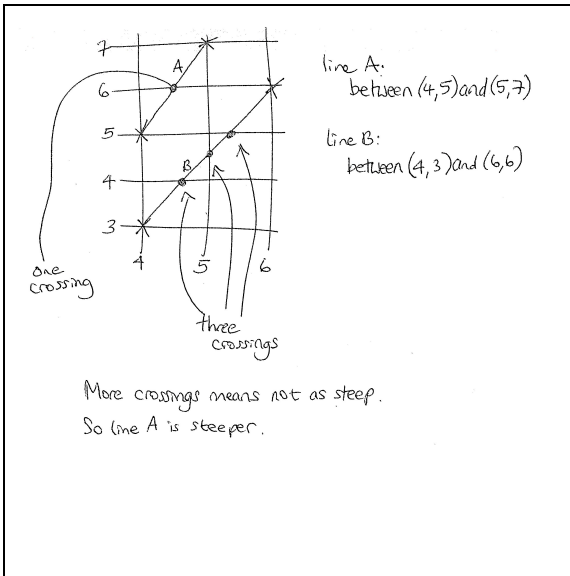 7
A
6
5
B
4
3
4 5 6
one
crossing
three
crossings
line A:
between (4,5) and (5,7)
line B:
between (4,3) and (6,6)
More crossings means not as steep.
So line A is steeper.